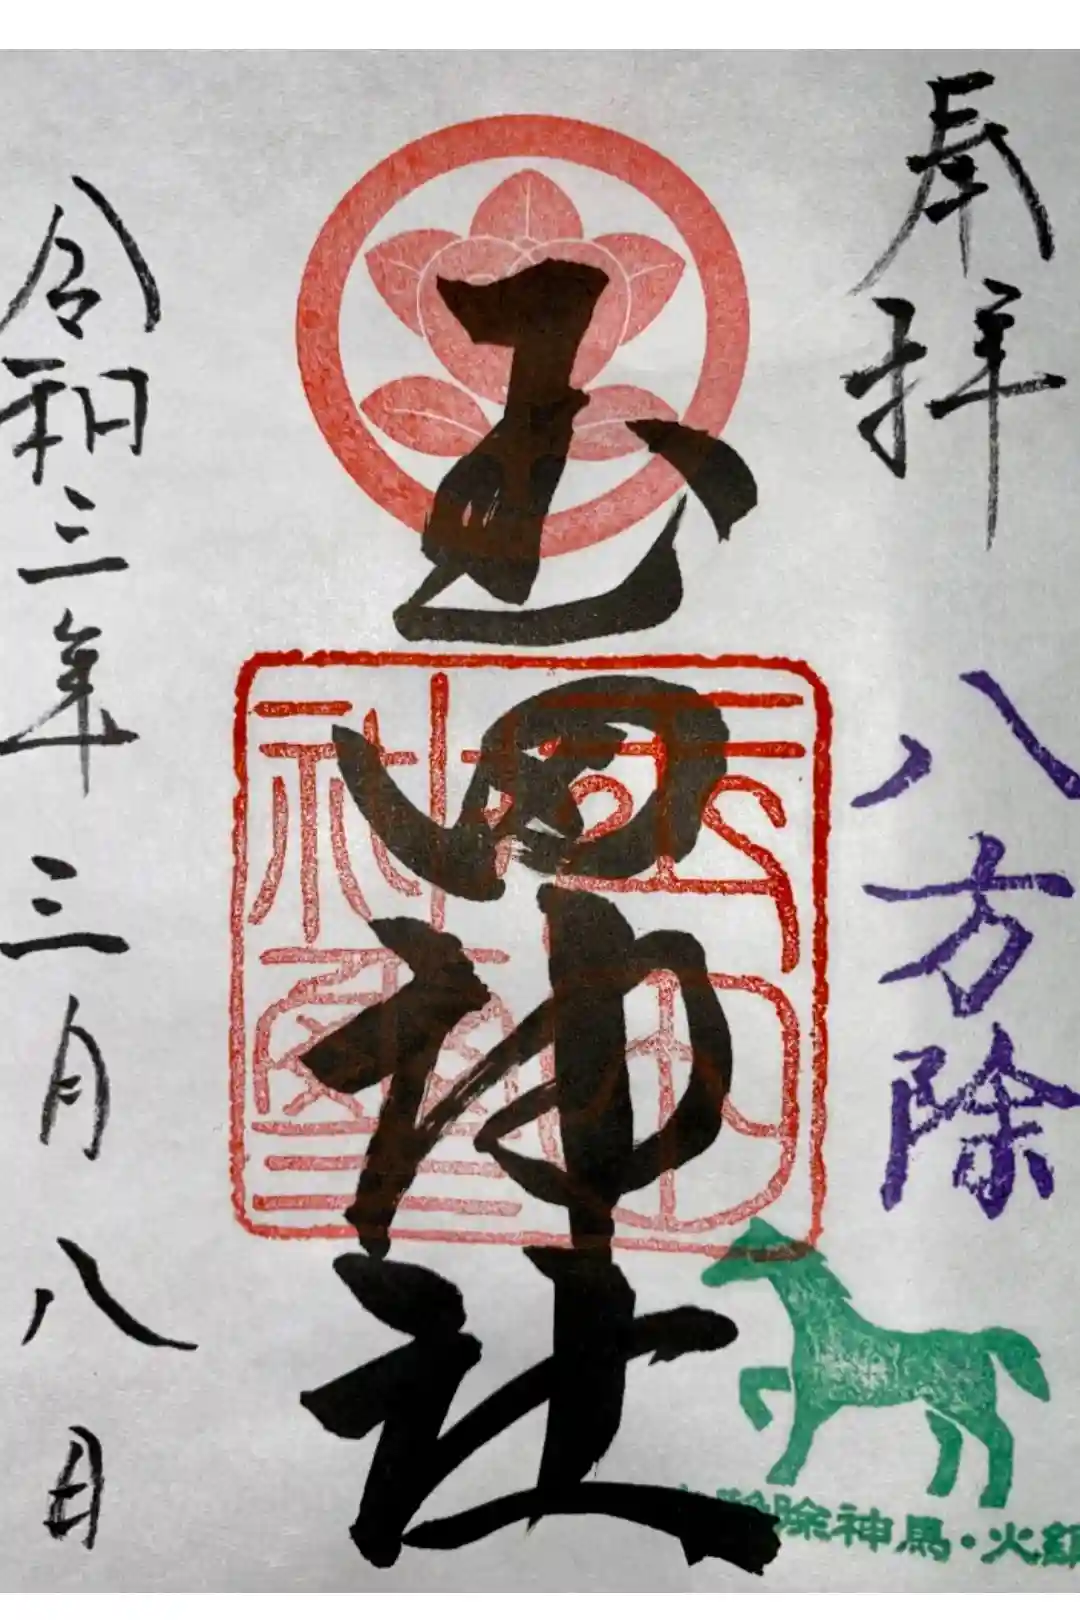 奉拝
八方除
玉田神社
令和三年三月八日
除神馬・火